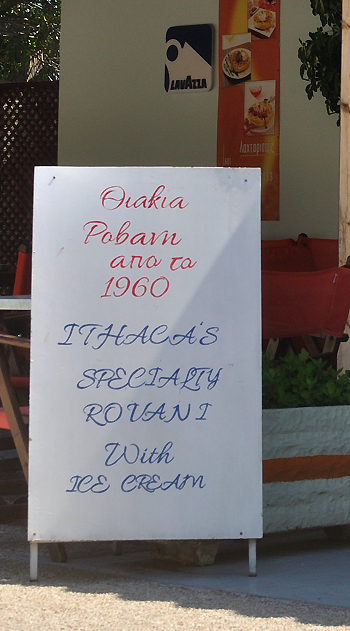 LAVAZZA
Λαχταριστές
Θιακια
Ροβανη
απο το
1960
ITHACA'S
SPECIALTY
ROVANI
With
ICE CREAM